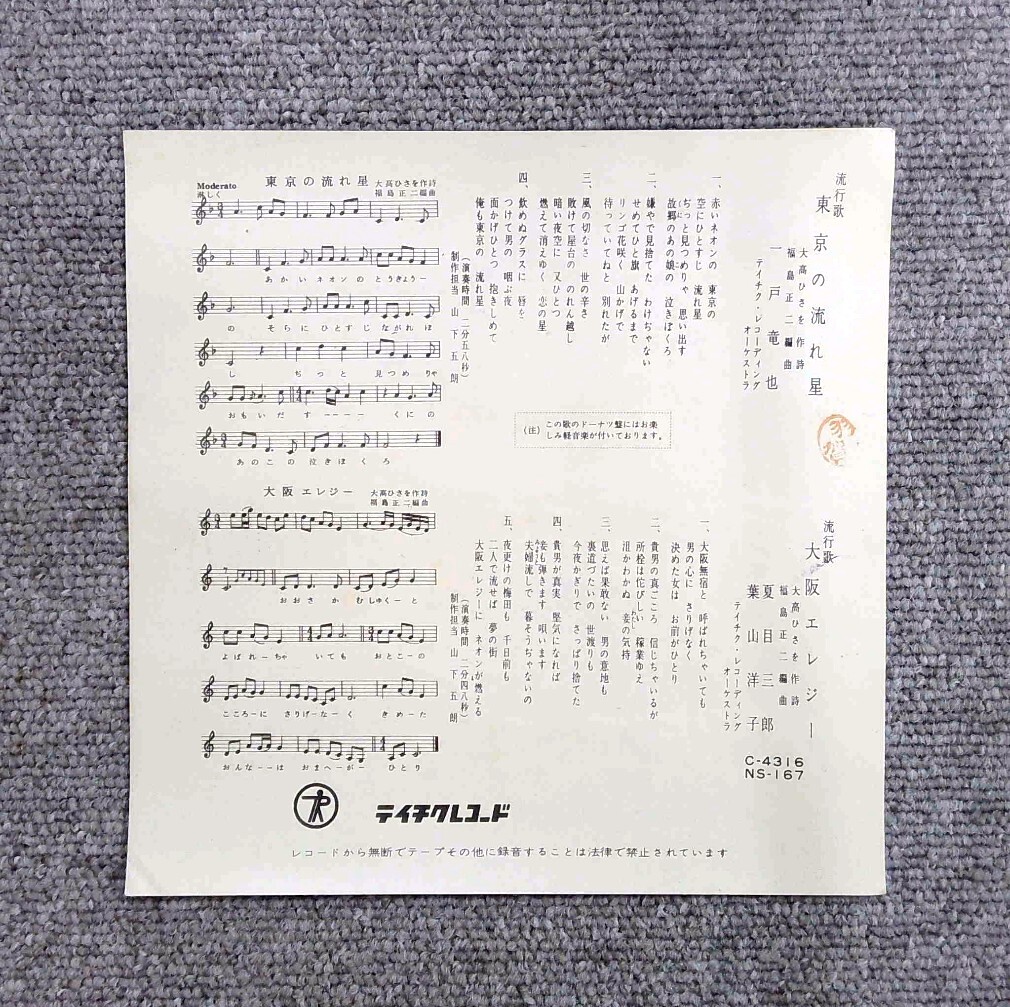 流行歌
東京の流れ星
大高ひさを 作詩
福島正二 編曲
一戸竜也
テイチク・レコーディング
オーケストラ
一、赤いネオンの 東京の
空にひとすじ 流れ星
ぢっと見つめりゃ 思い出す
故郷のあの娘の 泣きぼくろ
二、嫌やで見捨てた わけぢゃない
せめてひと旗 あげるまで
リンゴ花咲く 山かげで
待っていてねと 別れたが
三、風の切なさ 世の辛さ
敗けて屋台の のれん越し
暗い夜空に 又ひとつ
燃えて消えゆく 恋の星
四、飲めぬグラスに 唇を
つけて男の 咽ぶ夜
面かげひとつ 抱きしめて
俺も東京の 流れ星
(演奏時間 二分五八秒)
制作担当 山下五朗
東京の流れ星
大高ひさを作詩
福島正二編曲
Moderato
淋しく
あかいネオンのとうきょうー
の そらにひとすじながれぼ
し ぢっと 見つめりゃ
おもいだすーーーー くにの
あのこの泣きぼくろ
(注) この歌のドーナツ盤にはお楽
しみ軽音楽が付いております。
流行歌
大阪エレジー
大高ひさを 作詩
福島正二 編曲
夏目三郎
葉山洋子
テイチク・レコーディング
オーケストラ
C-4316
NS-167
一、大阪無宿と 呼ばれちゃいても
男の心に さりげなく
決めた女は お前がひとり
二、貴男の真ごころ 信じちゃいるが
所栓は佗びしい 稼業ゆえ
泪かわかぬ 妾の気持
三、思えば果敢ない 男の意地も
裏道づたいの 世渡りも
今夜かぎりで さっぱり捨てた
四、貴男が真実 堅気になれば
妾も弾きます 唄います
夫婦流しで 暮そうぢゃないの
五、夜更けの梅田も 千日前も
二人で流せば 夢の街
大阪エレジーに ネオンが燃える
(演奏時間 二分四八秒)
制作担当 山下五朗
大阪エレジー
大高ひさを作詩
福島正二編曲
おおさかむしゅくーと
よばれーちゃ いても おとこーの
こころーに さりげーなーく きめーた
おんなーーは おまへーがー ひとり
テイチクレコード
レコードから無断でテープその他に録音することは法律で禁止されています